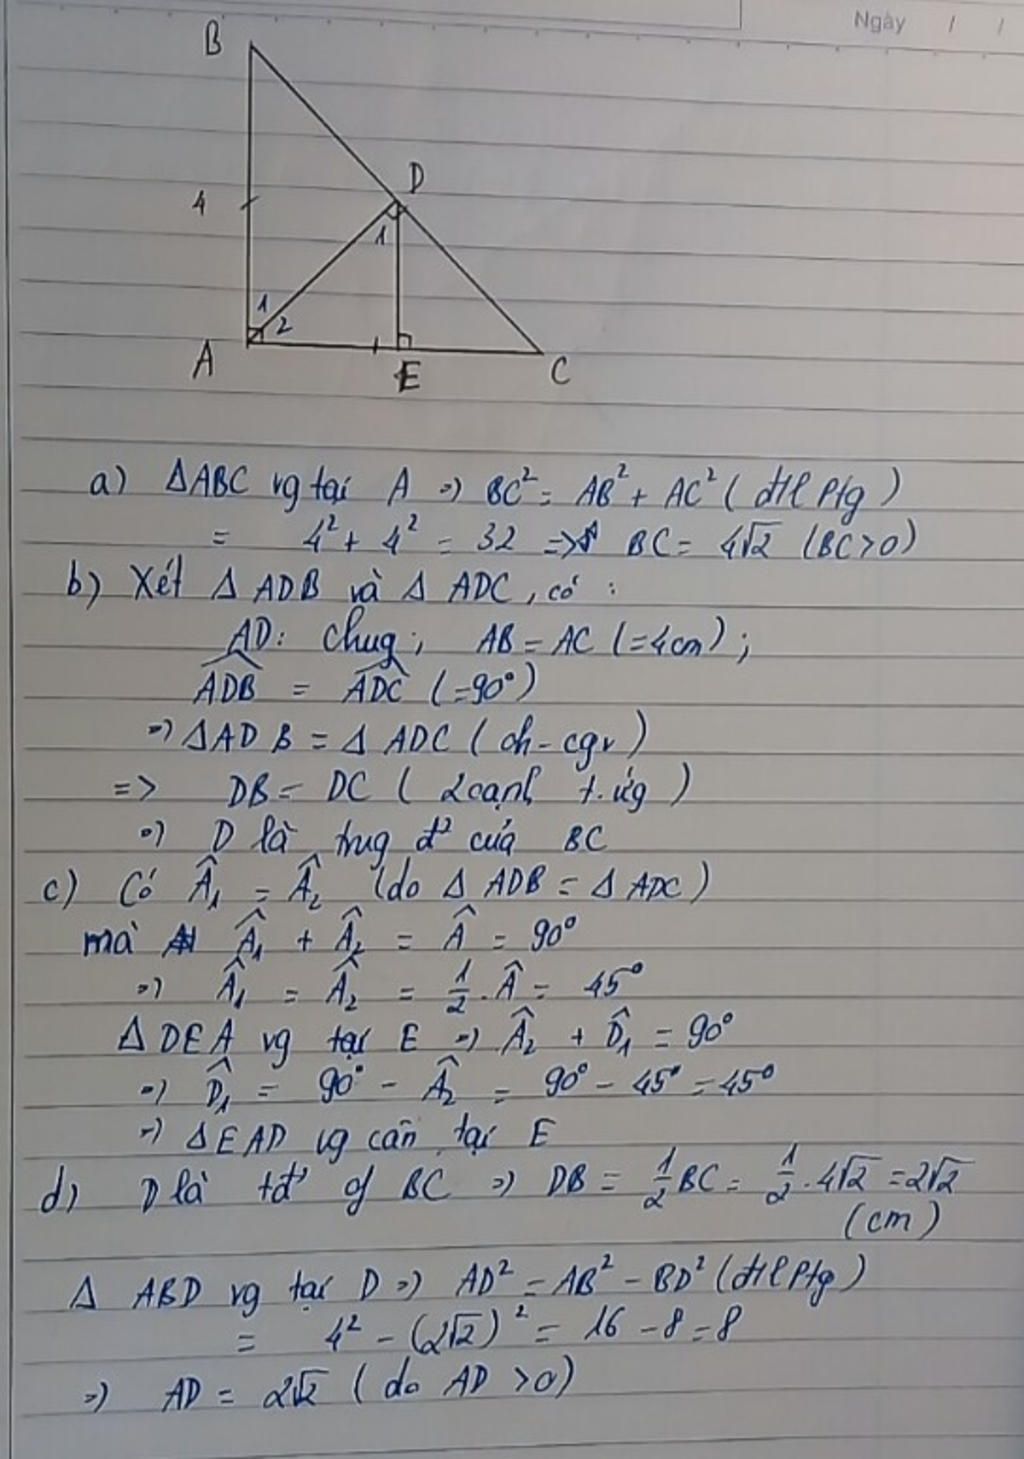 Ngày / /
B
D
4
1
1
2
A
E
C
a) ΔABC vg tại A => BC² = AB² + AC² (đtl Ptg)
= 4² + 4² = 32 => BC = 4√2 (BC>0)
b) Xét Δ ADB và Δ ADC, có :
AD: chug; AB = AC (=4cm);
\widehat{ADB} = \widehat{ADC} (=90°)
=> ΔADB = Δ ADC (ch-cgv)
=> DB = DC ( 2cạnh t.ứg )
=> D là trug đ² của BC
c) Có Â₁ = Â₂ (do Δ ADB = Δ ADC)
mà Â₁ + Â₂ = Â = 90°
=> Â₁ = Â₂ = 1/2 . Â = 45°
Δ DEA vg tại E => Â₂ + D̂₁ = 90°
=> D̂₁ = 90° - Â₂ = 90° - 45° = 45°
=> ΔEAD vg cân tại E
d) D là tđ² of BC => DB = 1/2 BC = 1/2 . 4√2 = 2√2
(cm)
Δ ABD vg tại D => AD² = AB² - BD² (đtl Ptg)
= 4² - (2√2)² = 16 - 8 = 8
=> AD = 2√2 ( do AD >0)